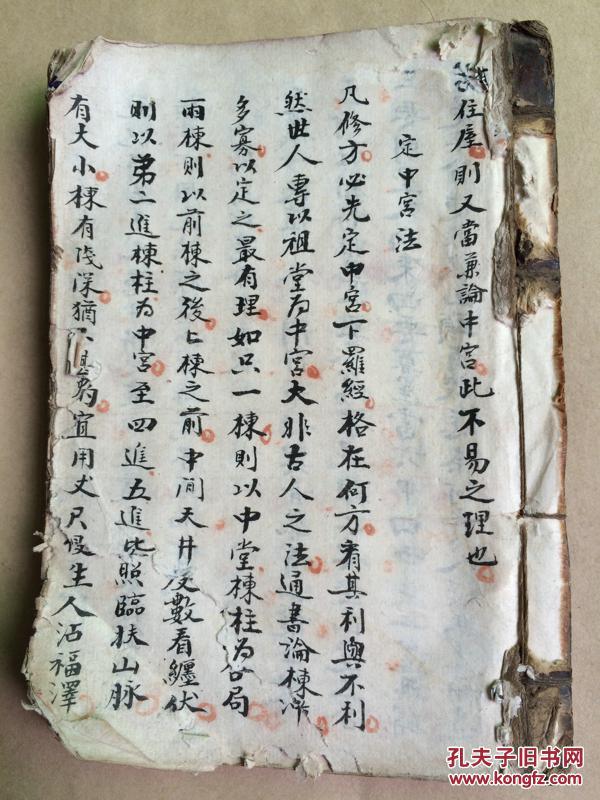 住屋則又當兼論中宮此不易之理也
定中宮法
凡修方必先定中宮下羅經格在何方看其利與不利
然世人專以祖堂為中宮大非古人之法通書論棟
多寡以定之最有理如只一棟則以中堂棟柱為
局
兩棟則以前棟之後上棟之前中間天井
度數看纏伏
則以第二進棟柱為中宮至四進五進
照臨扶山脉
有大小棟有淺深猶
宜用丈尺
生人沾福澤
孔夫子旧书网
www.kongfz.com